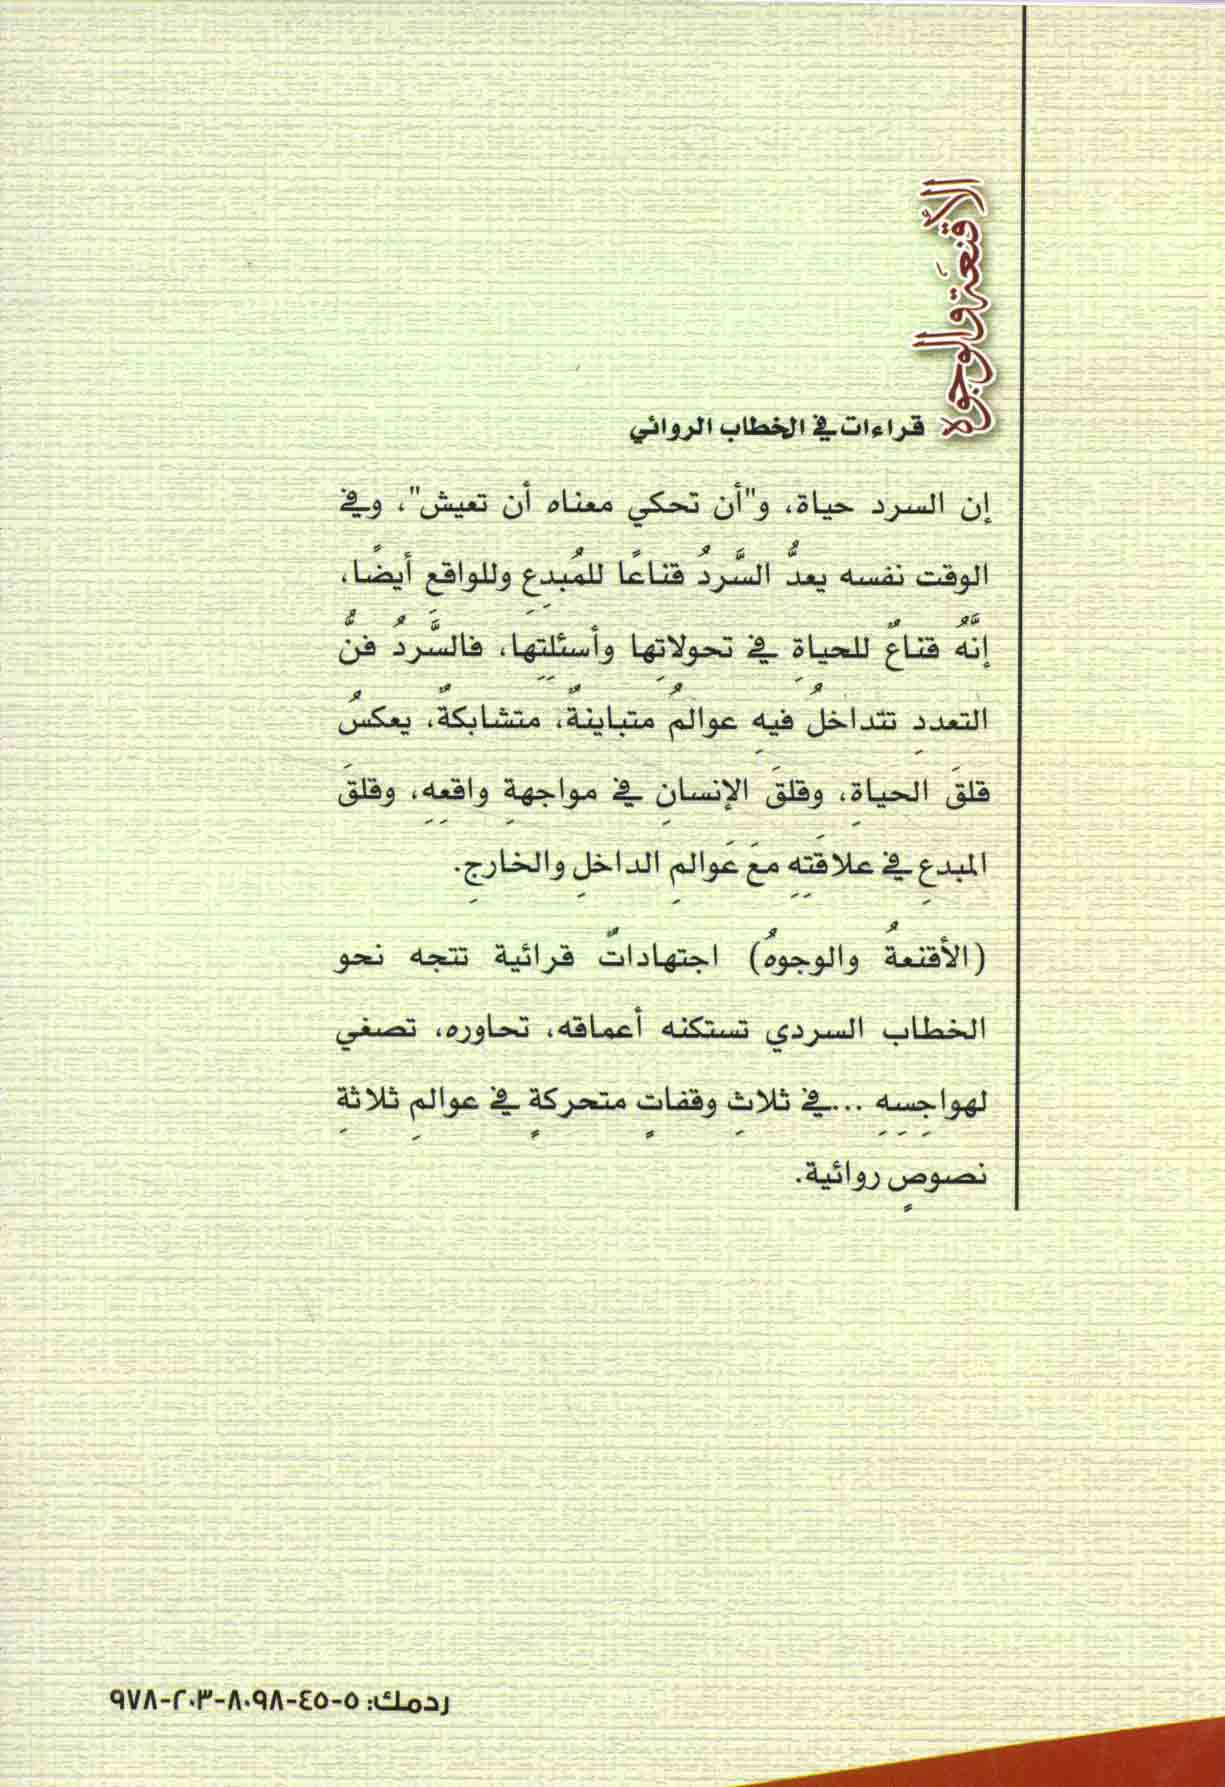 الأقنعة والوجوه
قراءات في الخطاب الروائي
إن السرد حياة، و"أن تحكي معناه أن تعيش"، وفي
الوقت نفسه يعدُّ السَّردُ قناعًا للمُبدِعِ وللواقعِ أيضًا،
إنَّهُ قناعٌ للحياةِ في تحولاتِها وأسئلتِها، فالسَّردُ فنُّ
التعددِ تتداخلُ فيهِ عوالمُ متباينةٌ، متشابكةٌ، يعكسُ
قلقَ الحياةِ، وقلقَ الإنسانِ في مواجهةِ واقعِهِ، وقلقَ
المبدعِ في علاقَتِهِ معَ عَوالمِ الداخلِ والخارجِ.
(الأقنعةُ والوجوهُ) اجتهاداتٌ قرائية تتجه نحو
الخطاب السردي تستكنه أعماقه، تحاوره، تصغي
لهواجِسِهِ ...في ثلاثِ وقفاتٍ متحركةٍ في عوالمِ ثلاثةِ
نصوصٍ روائية.
ردمك: ٥-٤٥-٨٠٩٨-٦٠٣-٩٧٨